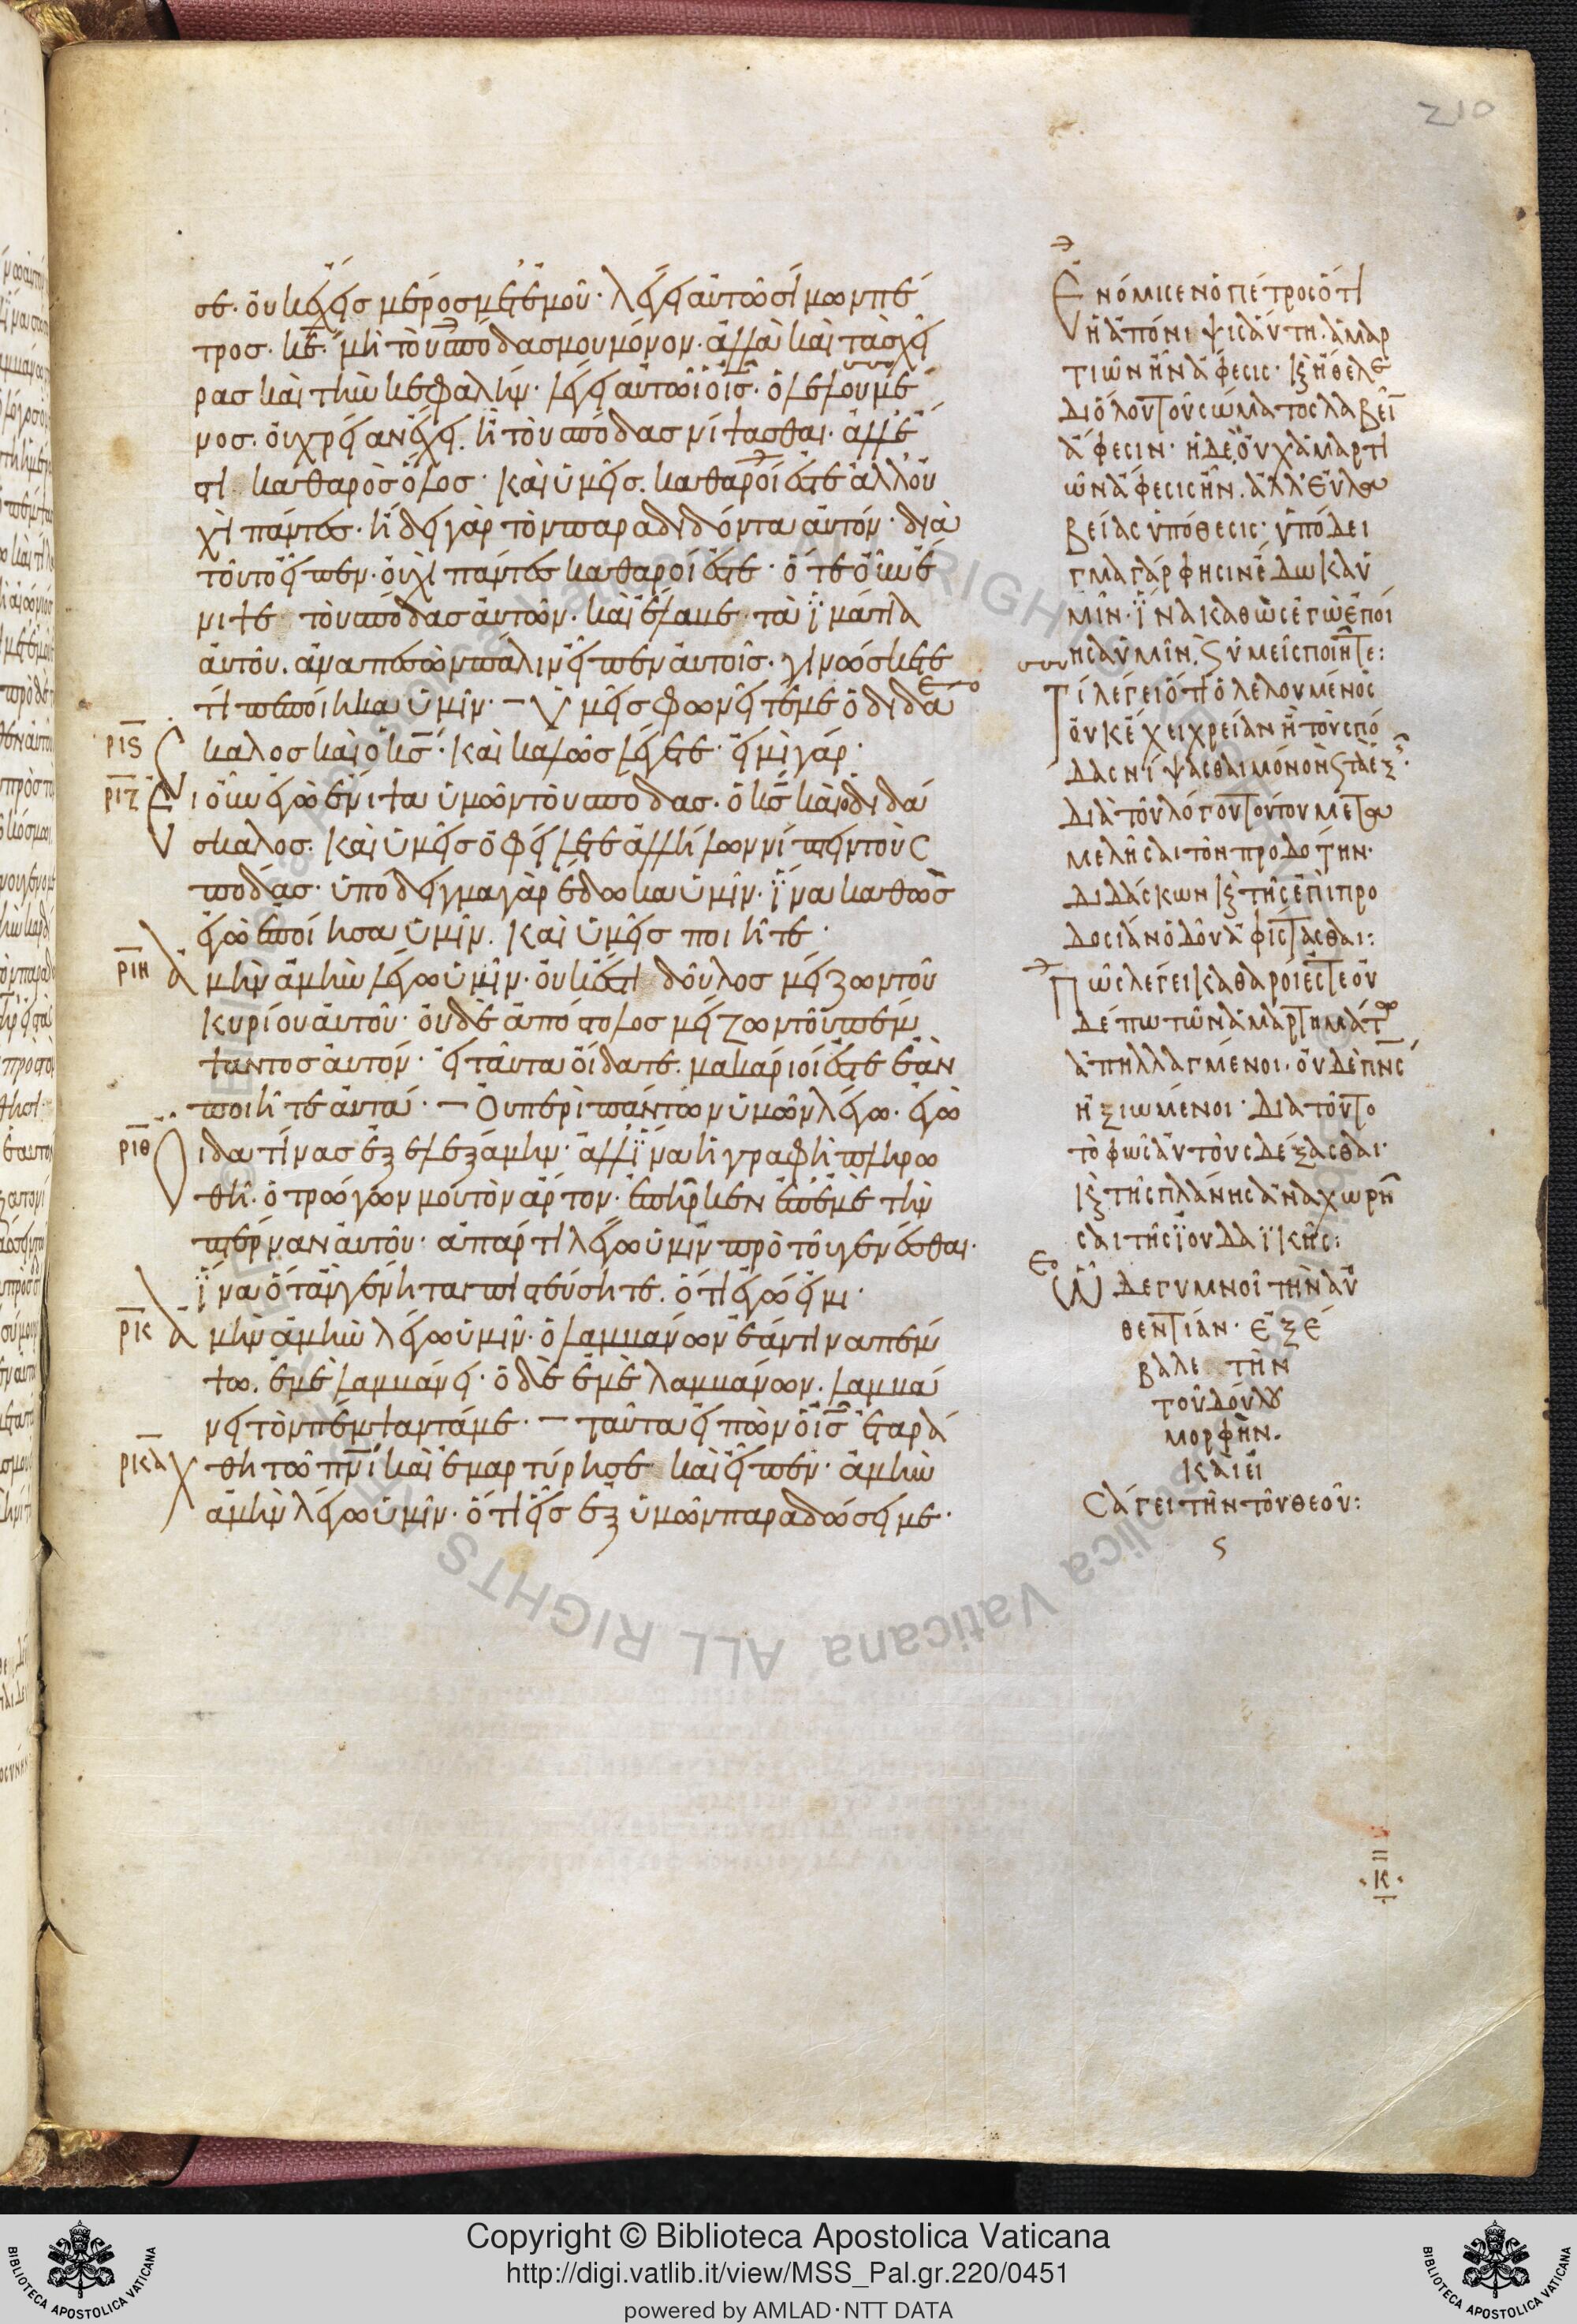 210
σε· οὐκ ἔχεις μέρος μετ' ἐμοῦ· λέγει αὐτῶ σίμων πέ
τρος· κ̅ε̅· μὴ τοὺς πόδας μου μόνον· ἀλλὰ καὶ τὰς χεῖ
ρας καὶ τὴν κεφαλήν· λέγει αὐτῶ ὁ ι̅ς̅· ὁ λελουμέ
νος· οὐ χρείαν ἔχει· ἢ τοὺς πόδας νίψασθαι· ἀλλ' ἔ
στι καθαρὸς ὅλος· καὶ ὑμεῖς καθαροί ἐστε ἀλλ' οὐ
χὶ πάντες· ἤδει γὰρ τὸν παραδιδόντα αὐτόν· διὰ
τοῦτο εἶπεν· οὐχὶ πάντες καθαροί ἐστε· ὅτε οὖν ἔ
νιψε τοὺς πόδας αὐτῶν· καὶ ἔλαβε τὰ ἱμάτια
αὐτοῦ· ἀναπεσὼν πάλιν εἶπεν αὐτοῖς· γινώσκετε
τί πεποίηκα ὑμῖν· – Ὑμεῖς φωνεῖτέ με ὁ διδά
ρ̅ι̅ς̅ σκαλος καὶ ὁ κ̅ς̅· καὶ καλῶς λέγετε· εἰμὶ γάρ·
ρ̅ι̅ζ̅ Εἰ οὖν ἐγὼ ἔνιψα ὑμῶν τοὺς πόδας· ὁ κ̅ς̅ καὶ ὁ διδά
σκαλος· καὶ ὑμεῖς ὀφείλετε ἀλλήλων νίπτειν τοὺς
πόδας· ὑπόδειγμα γὰρ ἔδωκα ὑμῖν· ἵνα καθὼς
ἐγὼ ἐποίησα ὑμῖν· καὶ ὑμεῖς ποιῆτε·
ρ̅ι̅η̅ ἀμὴν ἀμὴν λέγω ὑμῖν· οὐκ ἔστι δοῦλος μείζων τοῦ
κυρίου αὐτοῦ· οὐδὲ ἀπόστολος μείζων τοῦ πέμ
ψαντος αὐτόν· εἰ ταῦτα οἴδατε· μακάριοί ἐστε ἐὰν
ποιῆτε αὐτά· – Οὐ περὶ πάντων ὑμῶν λέγω· ἐγὼ
ρ̅ι̅θ̅ οἶδα τίνας ἐξελεξάμην· ἀλλ' ἵνα ἡ γραφὴ πληρω
θῆ· ὁ τρώγων μου τὸν ἄρτον· ἐπῆρκεν ἐπ' ἐμὲ τὴν
πτέρναν αὐτοῦ· ἀπάρτι λέγω ὑμῖν πρὸ τοῦ γενέσθαι·
ἵνα ὅταν γένηται πιστεύσητε· ὅτι ἐγώ εἰμι·
ρ̅κ̅ ἀμὴν ἀμὴν λέγω ὑμῖν· ὁ λαμβάνων ἐάν τινα πέμ
ψω· ἐμὲ λαμβάνει· ὁ δὲ ἐμὲ λαμβάνων· λαμβά
νει τὸν πέμψαντά με· – ταῦτα εἰπὼν ὁ ι̅ς̅ ἐταρά
ρ̅κ̅α̅ χθη τῶ π̅ν̅ι̅ καὶ ἐμαρτύρησε καὶ εἶπεν· ἀμὴν
ἀμὴν λέγω ὑμῖν· ὅτι εἷς ἐξ ὑμῶν παραδώσει με·
Ἐνόμισεν ὁ πέτρος ὅτι
ἡ ἀπόνιψις αὕτη· ἁμαρ
τιῶν ἦν ἄφεσις· κ(αὶ) ἤθελε
δι' ὅλου τοῦ σώματος λαβεῖν
ἄφεσιν· ἡ δὲ, οὐχ ἁμαρτι
ῶν ἄφεσις ἦν· ἀλλ' εὐλα
βείας ὑπόθεσις· ὑπόδει
γμα γάρ φησιν ἔδωκα ὑ
μῖν· ἵνα καθὼς ἐγὼ ἐποί
ησα ὑμῖν, κ(αὶ) ὑμεῖς ποιῆτε:
Τί λέγει ὅτι ὁ λελουμένος
οὐκ ἔχει χρείαν ἢ τοὺς πό
δας νίψασθαι μόνον κ(αὶ) τὰ ἑξ(ῆς)·
διὰ τοῦ λόγου τούτου μετα
μελῆσαι τὸν προδότην·
διδάσκων κ(αὶ) τῆς ἐπὶ προ
δοσίαν ὁδοῦ ἀφίστασθαι:
Πῶς λέγει καθαροί ἐστε οὐ
δέπω τῶν ἁμαρτημάτων
ἀπηλλαγμένοι· οὐδὲ π̅ν̅ς̅
ἠξιωμένοι· διὰ τοῦτο
τὸ φῶς αὐτοὺς δέξασθαι·
κ(αὶ) τῆς πλάνης ἀναχωρῆ
σαι τῆς ἰουδαϊκῆς:
Ὧδε γυμνοῖ τὴν αὐ
θεντίαν· ἐξέ
βαλε τὴν
τοῦ δούλου
μορφὴν·
καὶ εἰ
σάγει τὴν τοῦ θεοῦ:
·κ·
Copyright © Biblioteca Apostolica Vaticana
http://digi.vatlib.it/view/MSS_Pal.gr.220/0451
powered by AMLAD·NTT DATA
BIBLIOTECA APOSTOLICA VATICANA
BIBLIOTECA APOSTOLICA VATICANA